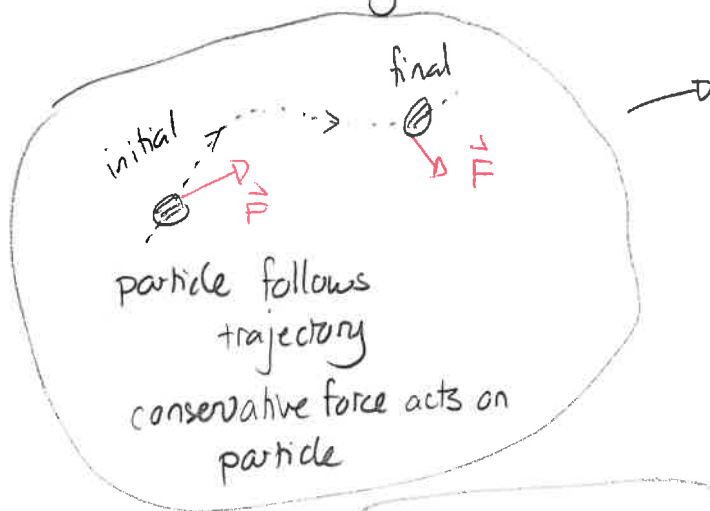 final
initial
F
F
particle follows
trajectory
conservative force acts on
particle